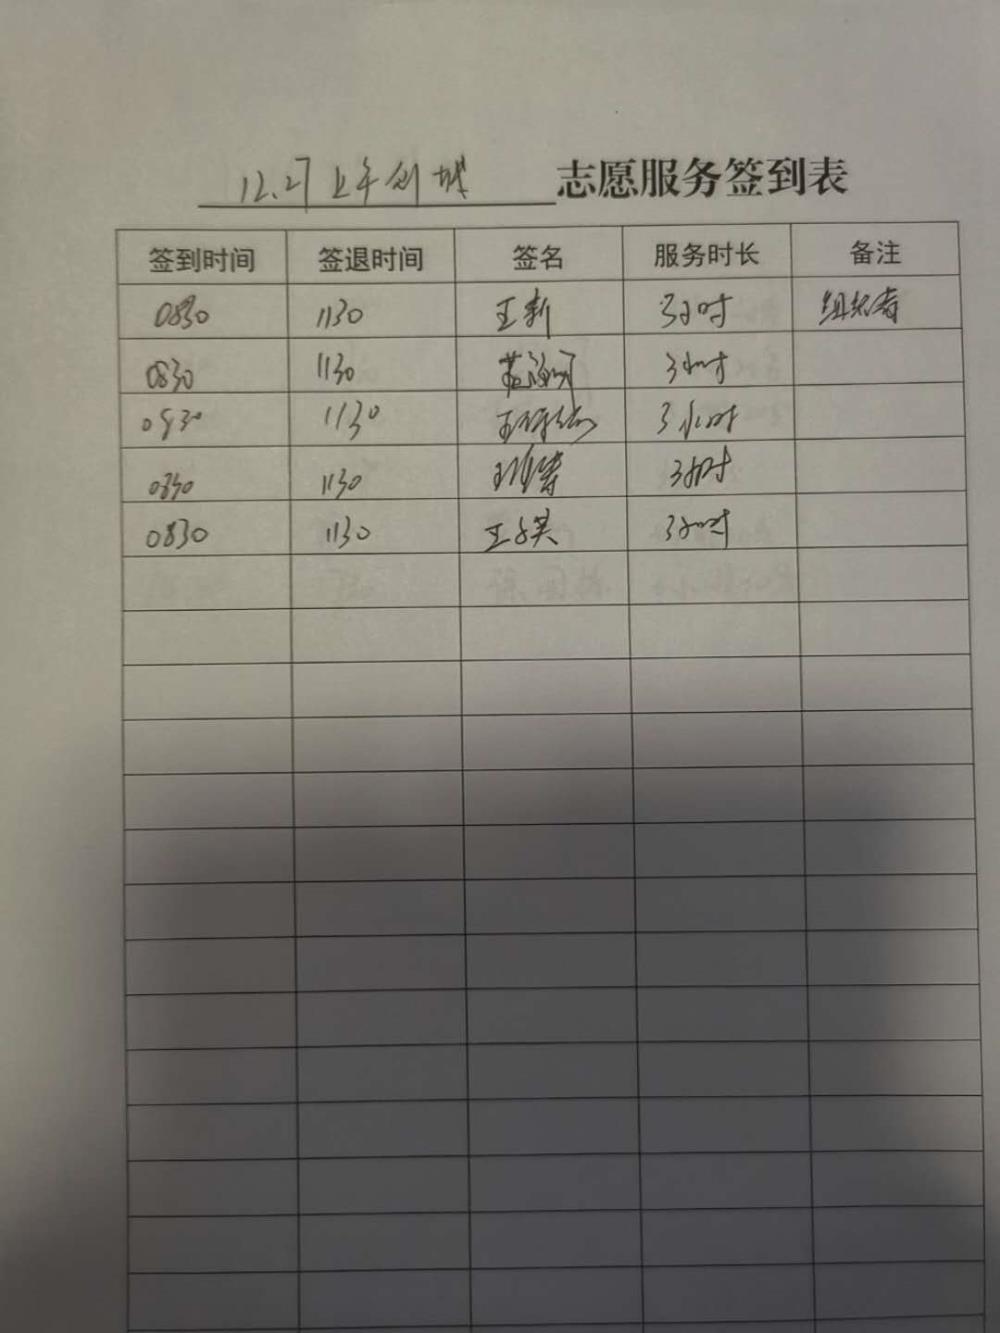 12.27上午创城 志愿服务签到表
签到时间 签退时间 签名 服务时长 备注
0830 1130 王新 3小时 组织者
0830 1130 3小时
0830 1130 王 3小时
0830 1130 3小时
0830 1130 王 3小时